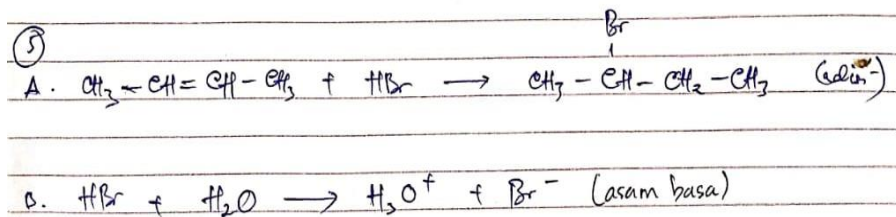 ⑤
Br
A. CH₃ - CH = CH - CH₃ + HBr → CH₃ - CH - CH₂ - CH₃
B. HBr + H₂O → H₃O⁺ + Br⁻ (asam basa)